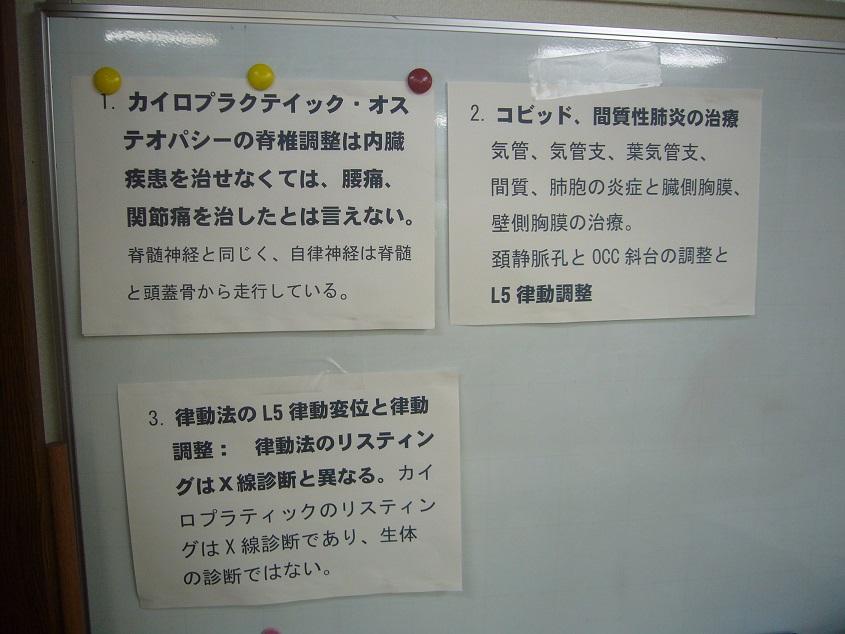 1. カイロプラクテイック・オス
テオパシーの脊椎調整は内臓
疾患を治せなくては、腰痛、
関節痛を治したとは言えない。
脊髄神経と同じく、自律神経は脊髄
と頭蓋骨から走行している。
2. コビッド、間質性肺炎の治療
気管、気管支、葉気管支、
間質、肺胞の炎症と臓側胸膜、
壁側胸膜の治療。
頚静脈孔と OCC 斜台の調整と
L5 律動調整
3. 律動法の L5 律動変位と律動
調整： 律動法のリスティン
グはＸ線診断と異なる。カイ
ロプラティックのリスティン
グはＸ線診断であり、生体
の診断ではない。